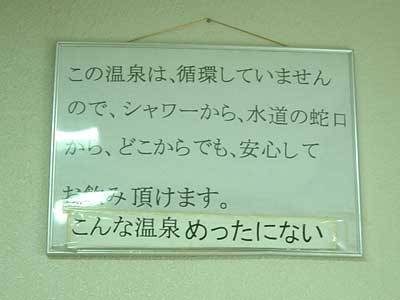 この温泉は、循環していません
ので、シャワーから、水道の蛇口
から、どこからでも、安心して
お飲み頂けます。
こんな温泉めったにない